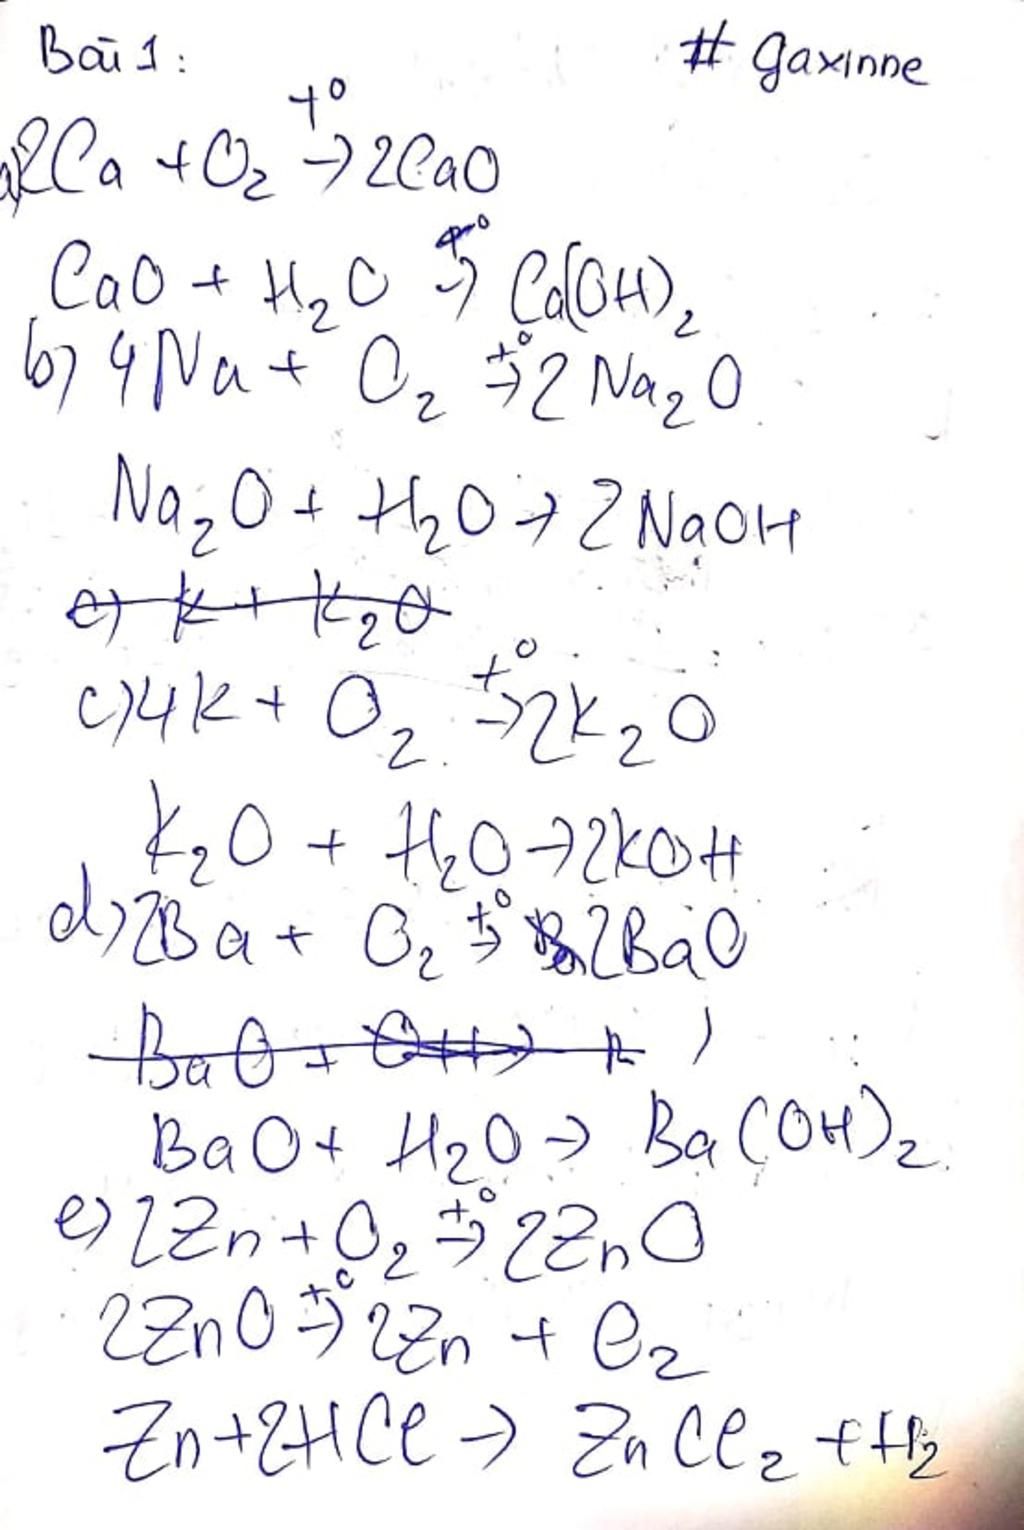 Bài 1:
# gaxinne
a) 2Ca + O₂ →t° 2CaO
CaO + H₂O → Ca(OH)₂
b) 4Na + O₂ →t° 2Na₂O
Na₂O + H₂O → 2NaOH
c) K + K₂O
c) 4K + O₂ →t° 2K₂O
K₂O + H₂O → 2KOH
d) 2Ba + O₂ →t° 2BaO
BaO + OH →
BaO + H₂O → Ba(OH)₂
e) 2Zn + O₂ →t° 2ZnO
2ZnO →t° 2Zn + O₂
Zn + 2HCl → ZnCl₂ + H₂